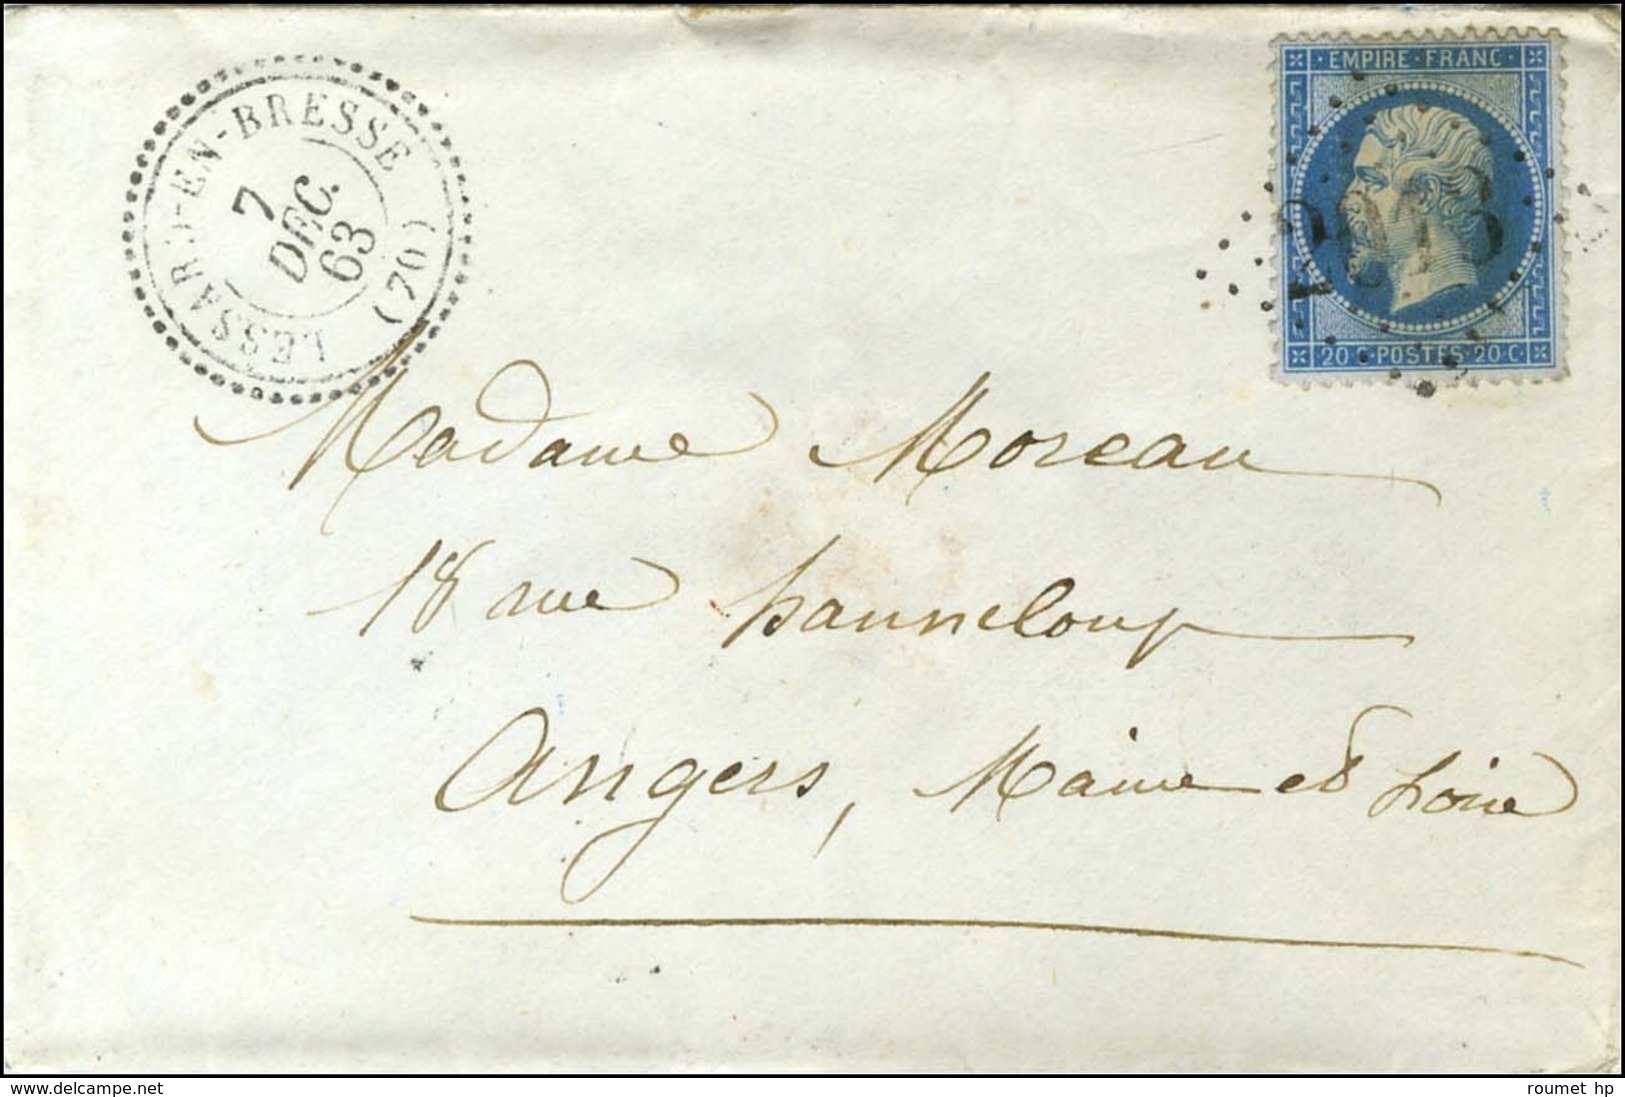 LESSARD-EN-BRESSE
7
DEC.
63
(70)
EMPIRE·FRANC·
2013
20 C·POSTES·20 C·
Madame Moreau
18 rue hanneloup
Angers, Maine et Loire
www.delcampe.net
roumet hp